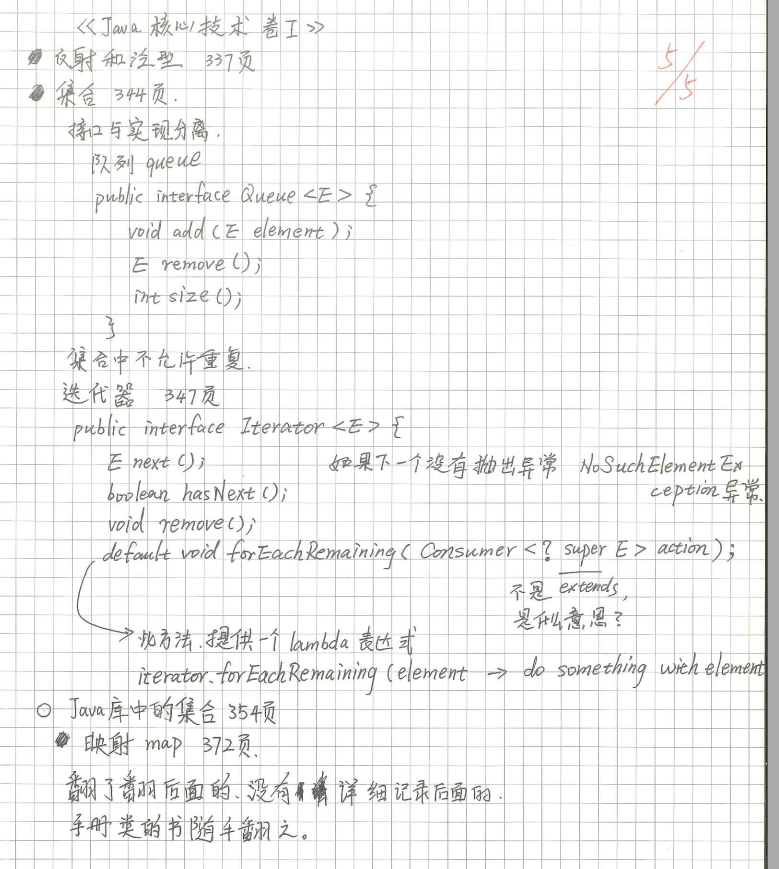 <<Java 核心技术 卷I>>
5/5
反射和泛型 337页
集合 344页.
接口与实现分离.
队列 queue
public interface Queue <E> {
void add (E element);
E remove ();
int size ();
}
集合中不允许重复.
迭代器 347页
public interface Iterator <E> {
E next ();
如果下一个没有抛出异常 NoSuchElementEx
boolean hasNext ();
ception异常.
void remove ();
default void forEachRemaining ( Consumer <? super E> action);
不是 extends,
是什么意思?
此方法.提供一个 lambda 表达式
iterator.forEachRemaining (element → do something with element
○ Java库中的集合 354页
映射 map 372页.
翻了翻后面的.没有 详细记录后面的.
手册类的书随手翻之。